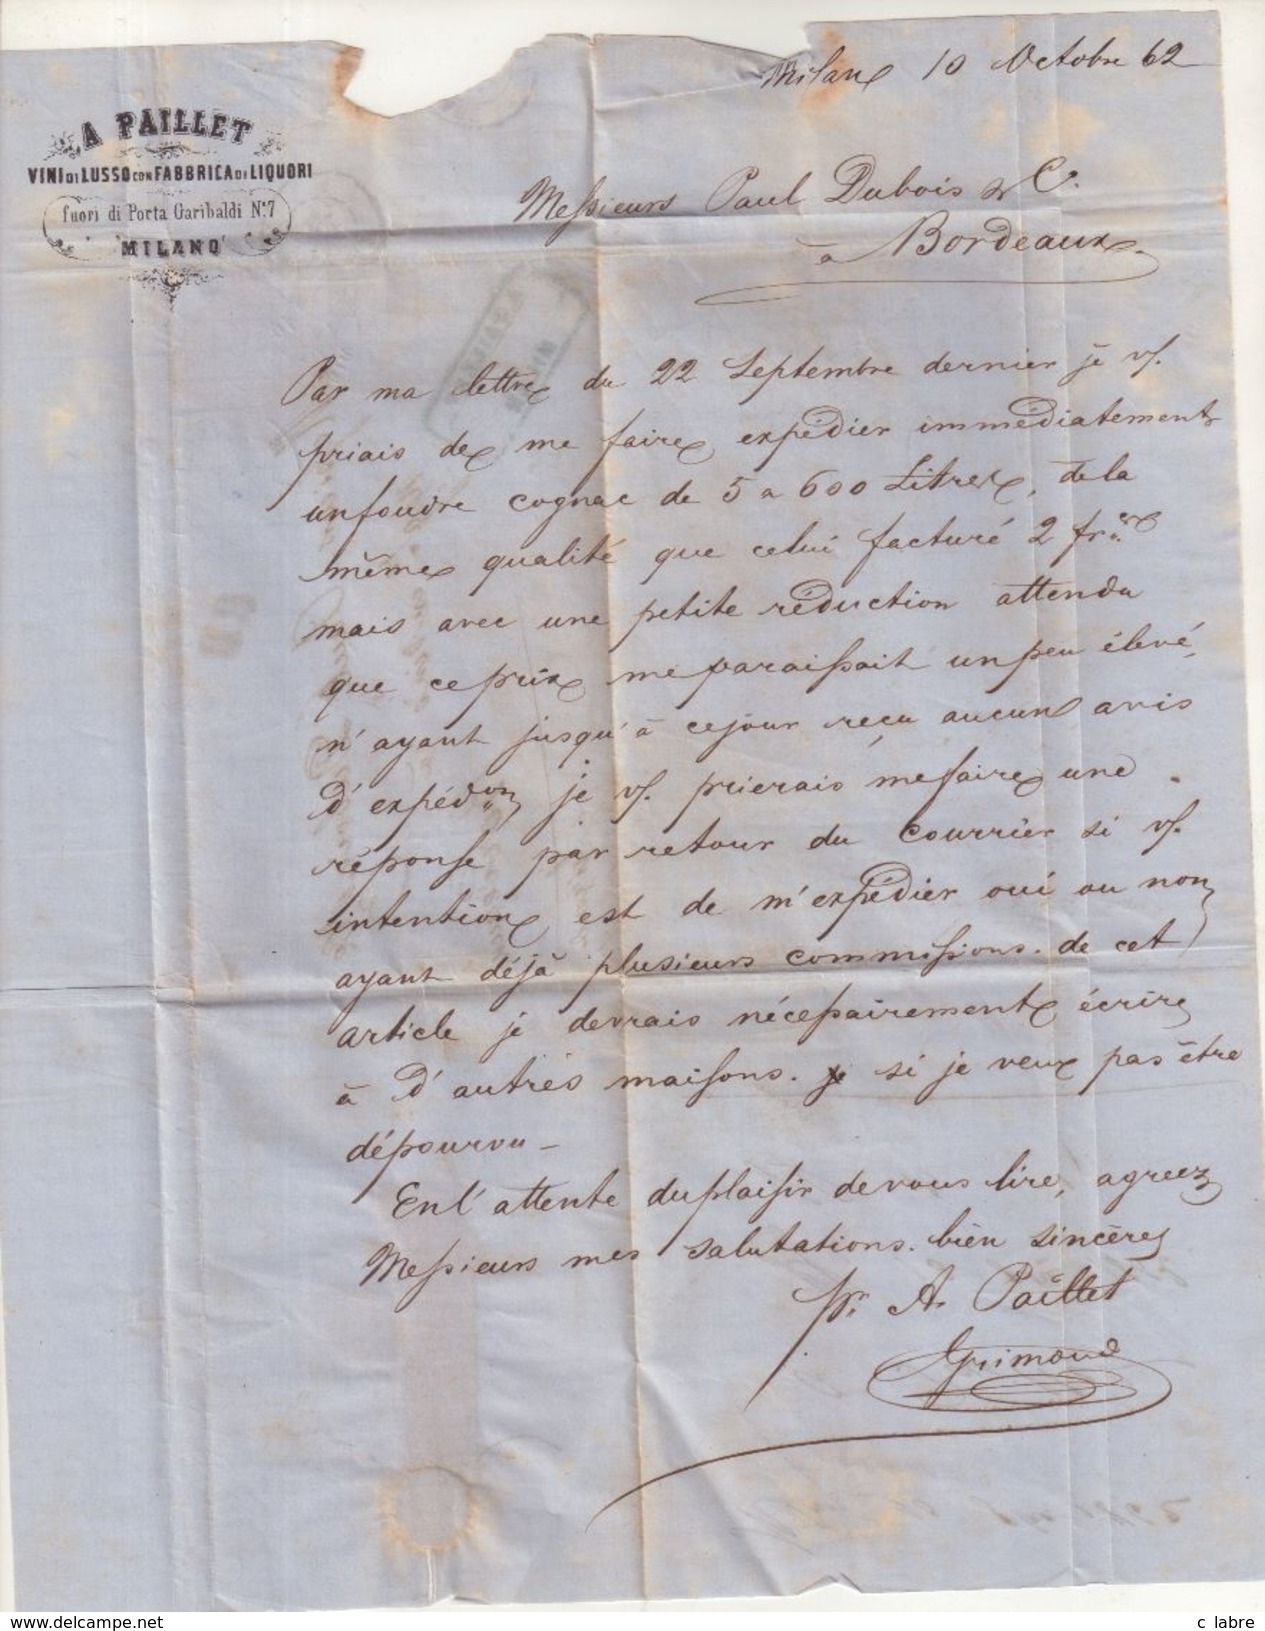 A PAILLET
VINI DI LUSSO CON FABBRICA DI LIQUORI
fuori di Porta Garibaldi N.º 7
MILANO
Milan 10 Octobre 62
Messieurs Paul Dubois & Cº.
à Bordeaux
Par ma lettre du 22 Septembre dernier je v/.
priais de me faire expédier immédiatement
un foudre cognac de 5 a 600 Litres, de la
même qualité que celui facturé 2 fr.
mais avec une petite réduction attendu
que ce prix me paraissait un peu élevé,
n'ayant jusqu'à ce jour reçu aucun avis
d'expédon je v/. prierais me faire une
réponse par retour du courrier si v/.
intention est de m'expédier oui ou non
ayant déjà plusieurs commissions. de cet
article je devrais nécessairement écrire
à d'autres maisons. je si je veux pas être
dépourvu —
En l'attente du plaisir de vous lire, agreez
Messieurs mes salutations. bien sincères
pr. A. Paillet
Grimoud
c labre